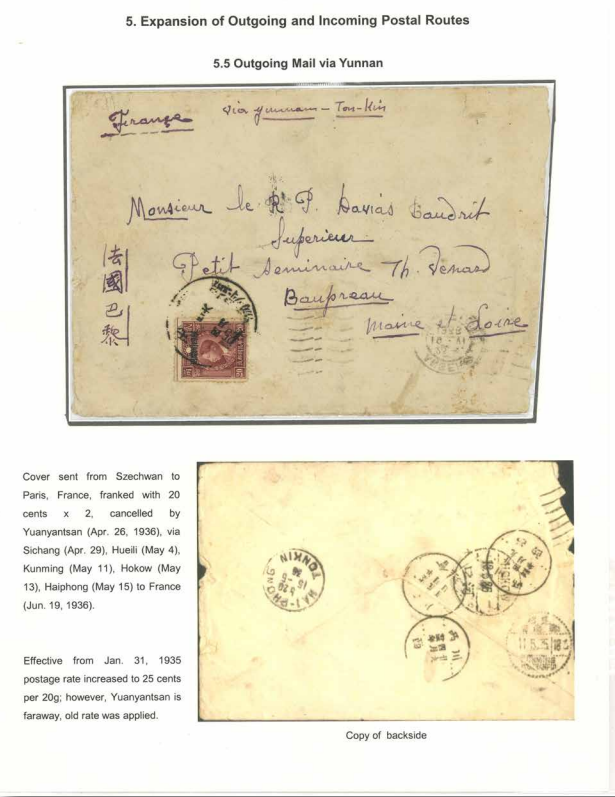 5. Expansion of Outgoing and Incoming Postal Routes
5.5 Outgoing Mail via Yunnan
France
via yunnam - Ton-Kin
Monsieur le R. P. Davias Baudrit
Superieur
Petit Seminaire Th. Venard
Baupreau
Maine & Loire
法
國
巴
黎
Cover sent from Szechwan to
Paris, France, franked with 20
cents x 2, cancelled by
Yuanyantsan (Apr. 26, 1936), via
Sichang (Apr. 29), Hueili (May 4),
Kunming (May 11), Hokow (May
13), Haiphong (May 15) to France
(Jun. 19, 1936).
Effective from Jan. 31, 1935
postage rate increased to 25 cents
per 20g; however, Yuanyantsan is
faraway, old rate was applied.
HAI-PHONG
TONKIN
Copy of backside